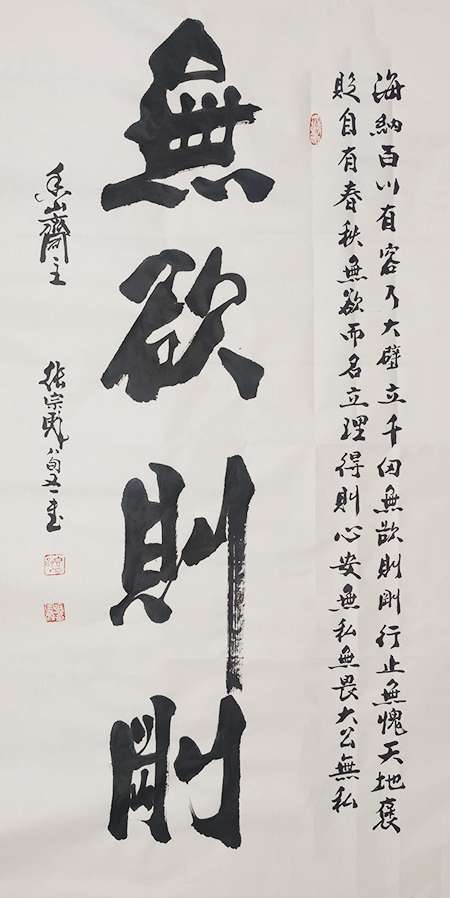 海納百川有容乃大壁立千仞無欲則剛行止無愧天地褒
貶自有春秋無欲而名立理得則心安無私無畏大公無私
無欲則剛
山齋主
張宗